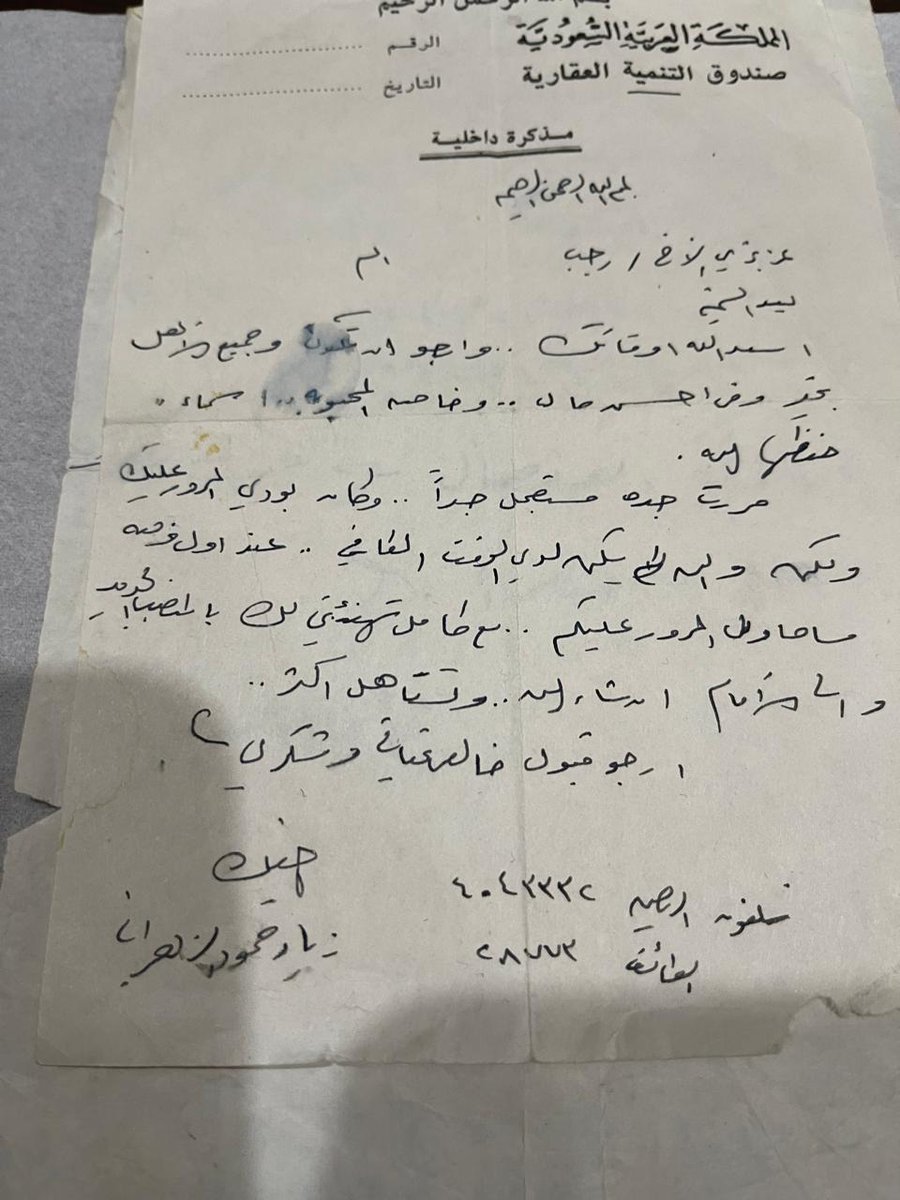 بسم الله الرحمن الرحيم
المملكة العربية السعودية
صندوق التنمية العقارية
الرقم ....................
التاريخ ....................
مذكرة داخلية
بسم الله الرحمن الرحيم
عزيزي الأخ / رجب
بعد التحية
اسعد الله اوقاتك .. وارجو ان تكون وجميع الأهل
بخير وفي احسن حال .. وخاصه المحبوبه .. اسماء "
حفظها الله .
مررت جده مستعجل جداً .. وكان بودي المرور عليك
ولكن والله لم يكن لدي الوقت الكافي .. عند اول فرصه
ساحاول المرور عليكم .. مع كامل تهنئتي لك بالمنصب الجديد
والى الأمام ان شاء الله .. وتستاهل اكثر ..
ارجو قبول خالص تحياتي وشكري
اخيك
زياد حمود الزهراني
تلفون الرياض ٤٠٤٣٣٣٢
الطائف ٢٨٧٧٣